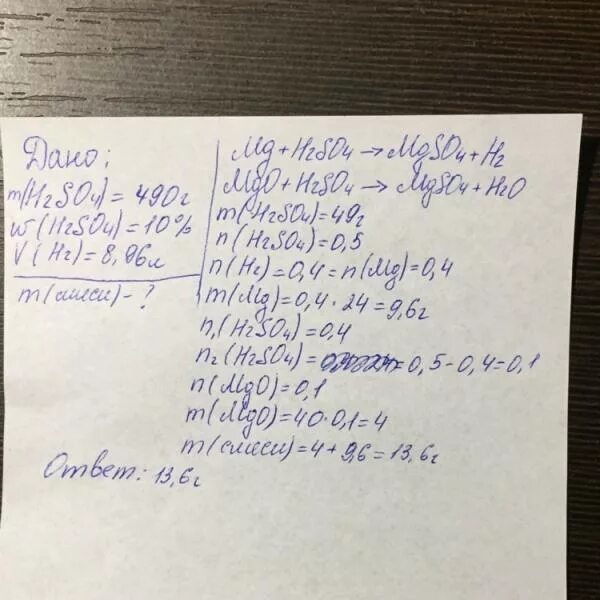 Дано:
m(H2SO4) = 490г
w(H2SO4) = 10%
V(H2) = 8,96л
m(смеси) - ?
Mg + H2SO4 → MgSO4 + H2
MgO + H2SO4 → MgSO4 + H2O
m(H2SO4) = 49г
n(H2SO4) = 0,5
n(H2) = 0,4 = n(Mg) = 0,4
m(Mg) = 0,4 · 24 = 9,6г
n1(H2SO4) = 0,4
n2(H2SO4) = 0,5 - 0,4 = 0,1
n(MgO) = 0,1
m(MgO) = 40 · 0,1 = 4
m(смеси) = 4 + 9,6 = 13,6г
Ответ: 13,6г